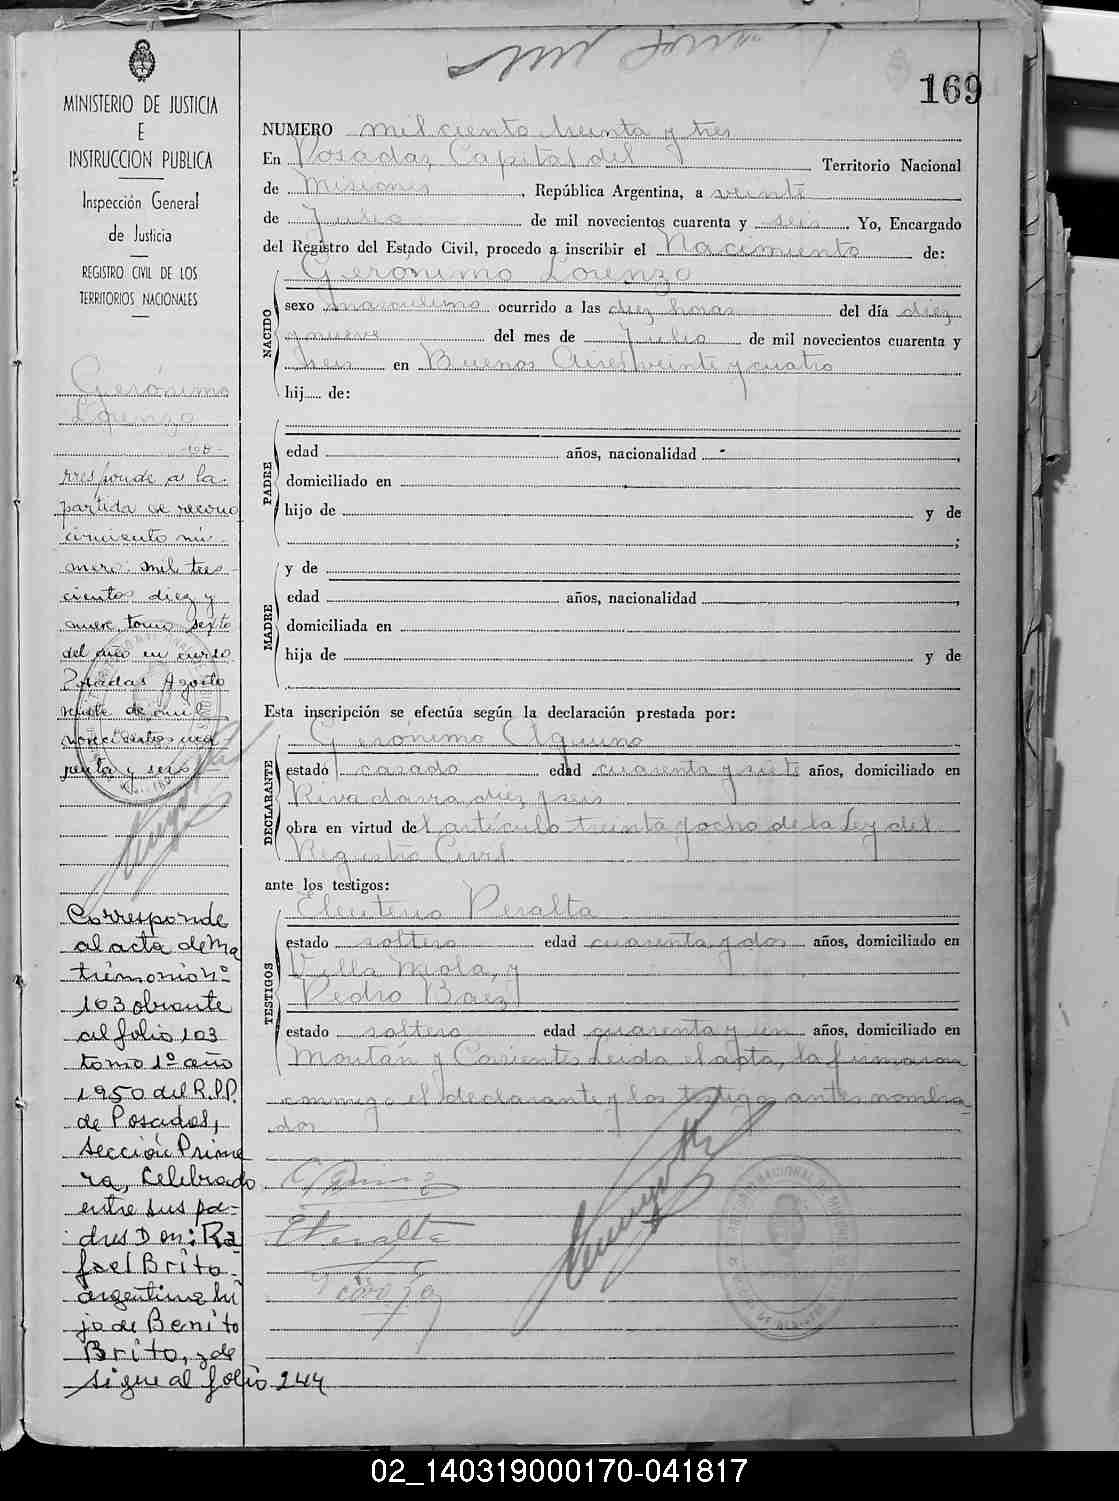 169
MINISTERIO DE JUSTICIA
E
INSTRUCCION PUBLICA
Inspección General
de Justicia
REGISTRO CIVIL DE LOS
TERRITORIOS NACIONALES
Gerónimo
Lorenzo
rresponde a la
partida de recono
cimiento nú-
mero: mil tres
cientos diez y
nueve, tomo sexto
del año en curso
Posadas Agosto
veinte de mil
novecientos cua
renta y seis
Corresponde
al acta de Ma
trimonio nº
103 obrante
al folio 103
tomo 1º año
1950 del R.P.P.
de Posadas,
sección Prime
ra, celebrado
entre sus pa-
dres Don: Ra
fael Brito
argentino hi
jo de Benito
Brito, y de
sigue al folio 244
NUMERO mil ciento treinta y tres
En Posadas, Capital del Territorio Nacional
de Misiones, República Argentina, a veinte
de Julio de mil novecientos cuarenta y seis. Yo, Encargado
del Registro del Estado Civil, procedo a inscribir el Nacimiento de:
Gerónimo Lorenzo
NACIDO
sexo masculino ocurrido a las diez horas del día diez
y nueve del mes de Julio de mil novecientos cuarenta y
seis en Buenos Aires veinte y cuatro
hij..... de:
PADRE
edad años, nacionalidad
domiciliado en
hijo de y de
;
y de
MADRE
edad años, nacionalidad
domiciliada en
hija de y de
Esta inscripción se efectúa según la declaración prestada por:
Geronimo Aquino
DECLARANTE
estado casado edad cuarenta y siete años, domiciliado en
Rivadavia diez y seis
obra en virtud del artículo treinta y ocho de la Ley del
Registro Civil
ante los testigos:
Eleuterio Peralta
TESTIGOS
estado soltero edad cuarenta y dos años, domiciliado en
Villa Miola, y
Pedro Baez
estado soltero edad cuarenta y un años, domiciliado en
y Corrientes Leida el acta, la firmaron
conmigo el declarante y los testigos antes nombra
dos
EPeralta
02_140319000170-041817